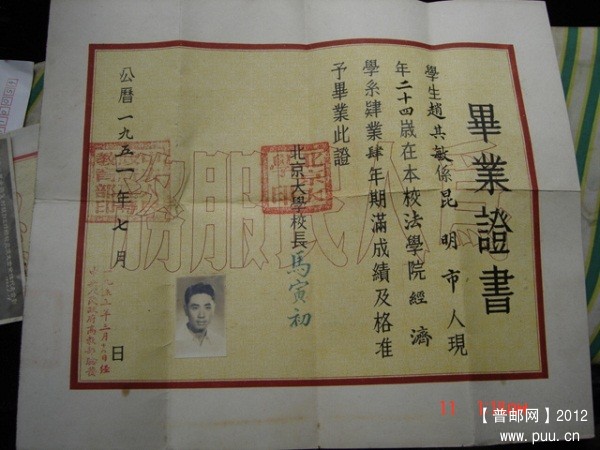 畢業證書
學生趙共敏係昆明市人現
年二十四歲在本校法學院經濟
學系肄業肆年期滿成績及格准
予畢業此證
北京大學校長馬寅初
公曆一九五一年七月 日
為人民服務
【普邮网】2012
www.puu.cn